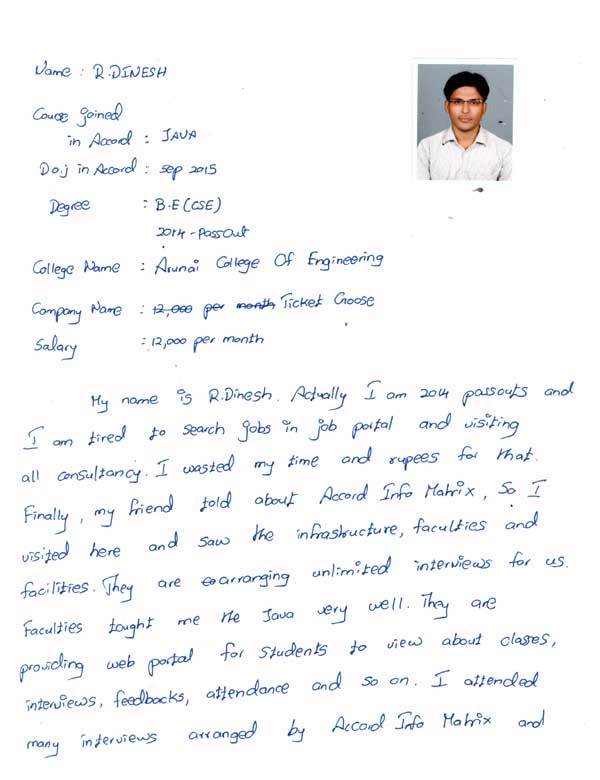 Name : R.DINESH
Course joined
in Accord : JAVA
D.o.j in Accord : sep 2015
Degree : B.E (CSE)
2014 - Passout
College Name : Arunai College Of Engineering
Company Name : 12,000 per month Ticket Goose
Salary : 12,000 per month
My name is R.Dinesh. Actually I am 2014 passouts and
I am tired to search jobs in job portal and visiting
all consultancy. I wasted my time and rupees for that.
Finally, my friend told about Accord Info Matrix, So I
visited here and saw the infrastructure, faculties and
facilities. They are arranging unlimited interviews for us.
Faculties tought me the Java very well. They are
providing web portal for students to view about classes,
interviews, feedbacks, attendance and so on. I attended
many interviews arranged by Accord Info Matrix and